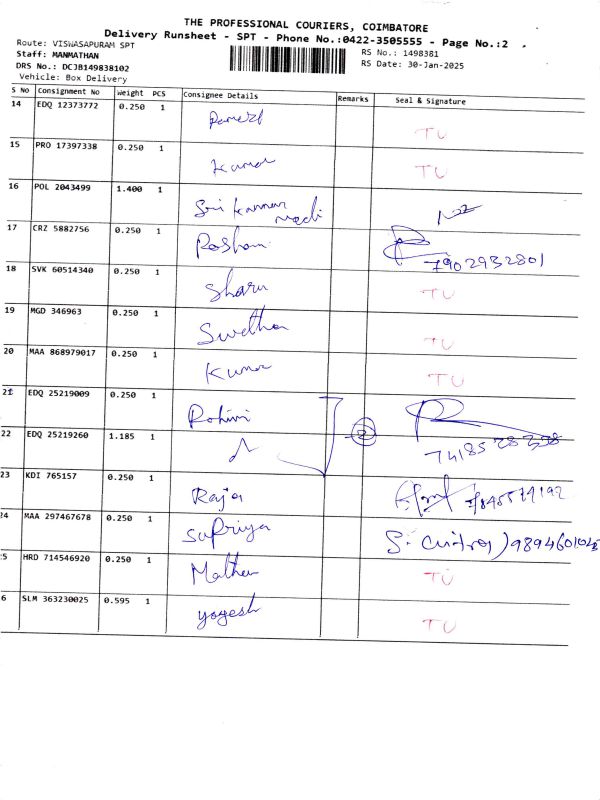 THE PROFESSIONAL COURIERS, COIMBATORE
Delivery Runsheet - SPT - Phone No.:0422-3505555 - Page No.:2
Route: VISWASAPURAM SPT
RS No.: 1498381
Staff: MANMATHAN
RS Date: 30-Jan-2025
DRS No.: DCJB149838102
Vehicle: Box Delivery
S No Consignment No Weight PCS Consignee Details Remarks Seal & Signature
14 EDQ 12373772 0.250 1 TU
15 PRO 17397338 0.250 1 Kumar TU
16 POL 2043499 1.400 1 Sri Kannan
17 CRZ 5882756 0.250 1 Roshan 7902932801
18 SVK 60514340 0.250 1 Sharu TU
19 MGD 346963 0.250 1 Swetha TU
20 MAA 868979017 0.250 1 Kumar TU
21 EDQ 25219009 0.250 1 Rohini 2
22 EDQ 25219260 1.185 1
23 KDI 765157 0.250 1 Raja
24 MAA 297467678 0.250 1 Supriya
5 HRD 714546920 0.250 1 TU
6 SLM 363230025 0.595 1 yogesh TU